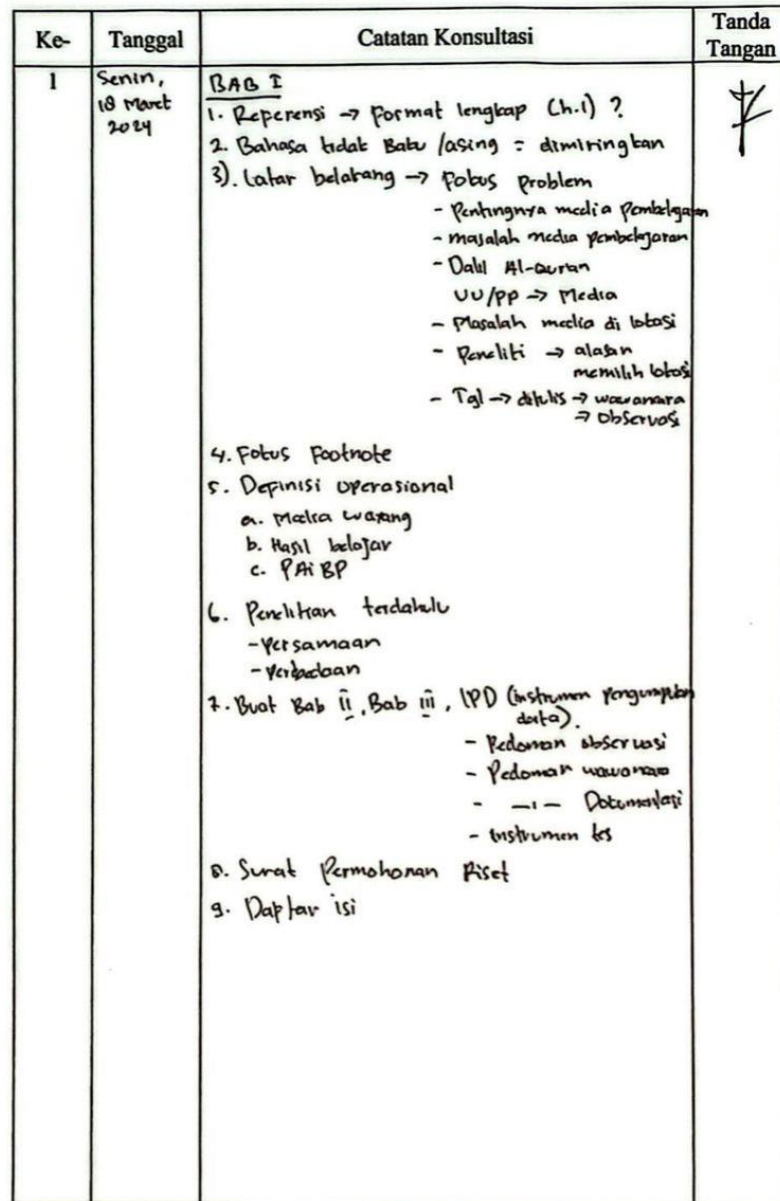 Ke-
Tanggal
Catatan Konsultasi
Tanda
Tangan
1
Senin,
18 Maret
2024
BAB I
1. Referensi → Format lengkap (h.1) ?
2. Bahasa tidak Baku /asing = dimiringkan
3). Latar belakang → Fokus problem
- Pentingnya media pembelajaran
- masalah media pembelajaran
- Dalil Al-Quran
UU/PP → Media
- Masalah media di lokasi
- Peneliti → alasan
memilih lokasi
- Tgl → ditulis → wawancara
→ observasi
4. Fokus Footnote
5. Definisi operasional
a. Media wayang
b. Hasil belajar
c. PAI BP
6. Penelitian terdahulu
- Persamaan
- Perbedaan
7. Buat Bab II, Bab III, IPD (instrumen pengumpulan
data).
- Pedoman observasi
- Pedoman wawancara
- —ı— Dokumentasi
- Instrumen tes
8. Surat Permohonan Riset
9. Daftar isi